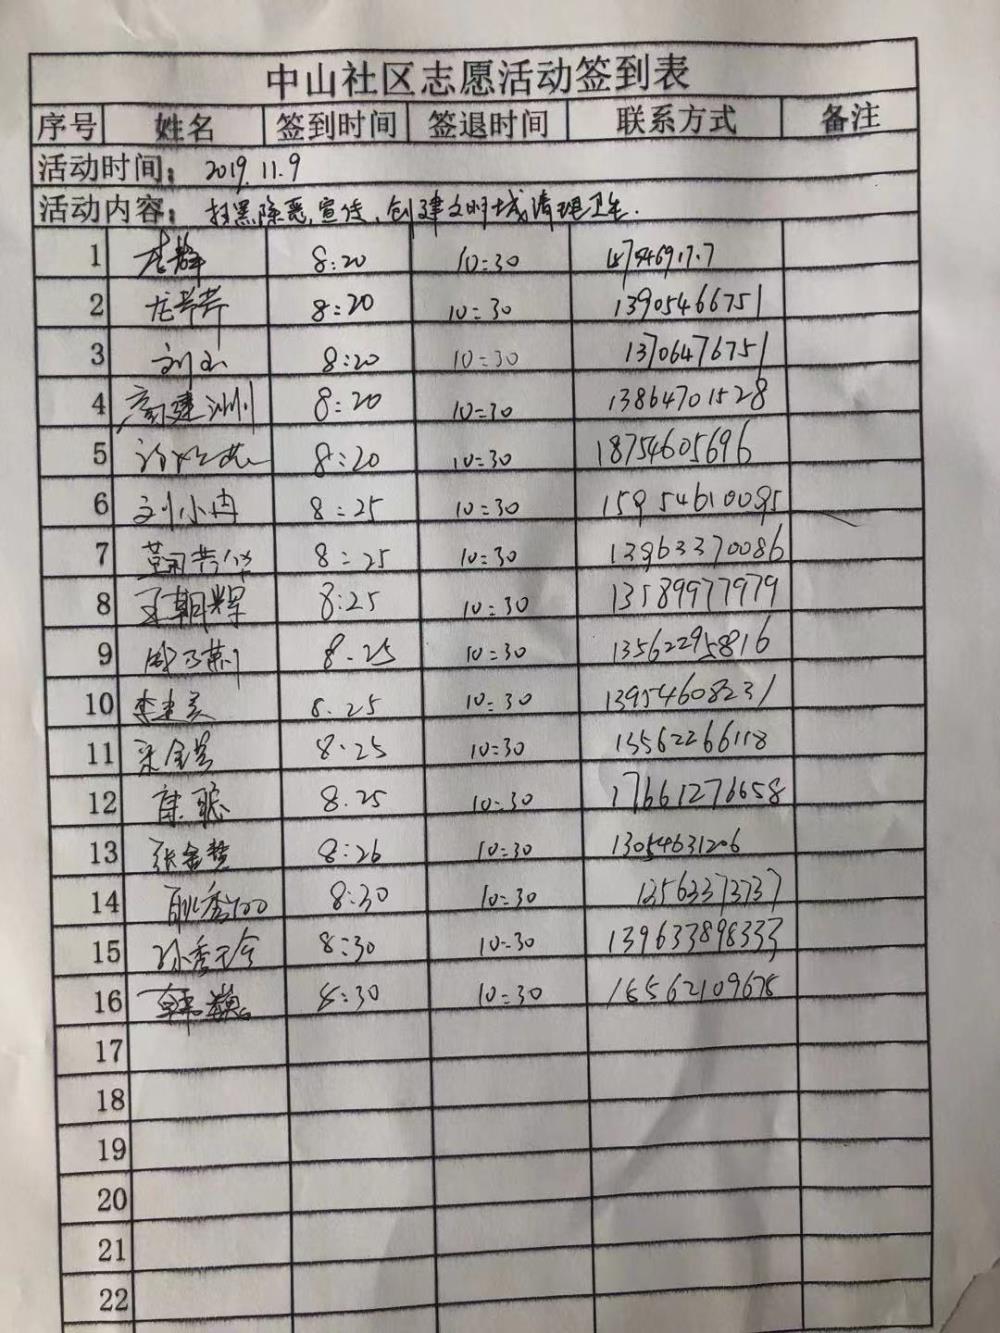 中山社区志愿活动签到表
序号 姓名 签到时间 签退时间 联系方式 备注
活动时间: 2019.11.9
活动内容: 扫黑除恶,宣传,创建文明城清理卫生.
1 8:20 10:30
2 龙芳芳 8:20 10:30 13905466751
3 刘玉 8:20 10:30 13706476751
4 8:20 10:30 13864701528
5 8:20 10:30 18754605696
6 刘小冉 8:25 10:30
7 8:25 10:30 13963370086
8 王朝辉 8:25 10:30 13589977979
9 8.25 10:30 13562295816
10 8.25 10:30 13954608231
11 8.25 10:30 13562266118
12 8.25 10:30 17661276658
13 8:26 10:30 13054631206
14 8:30 10:30 13563373737
15 8:30 10:30 139633898333
16 韩巍 8:30 10:30
17
18
19
20
21
22